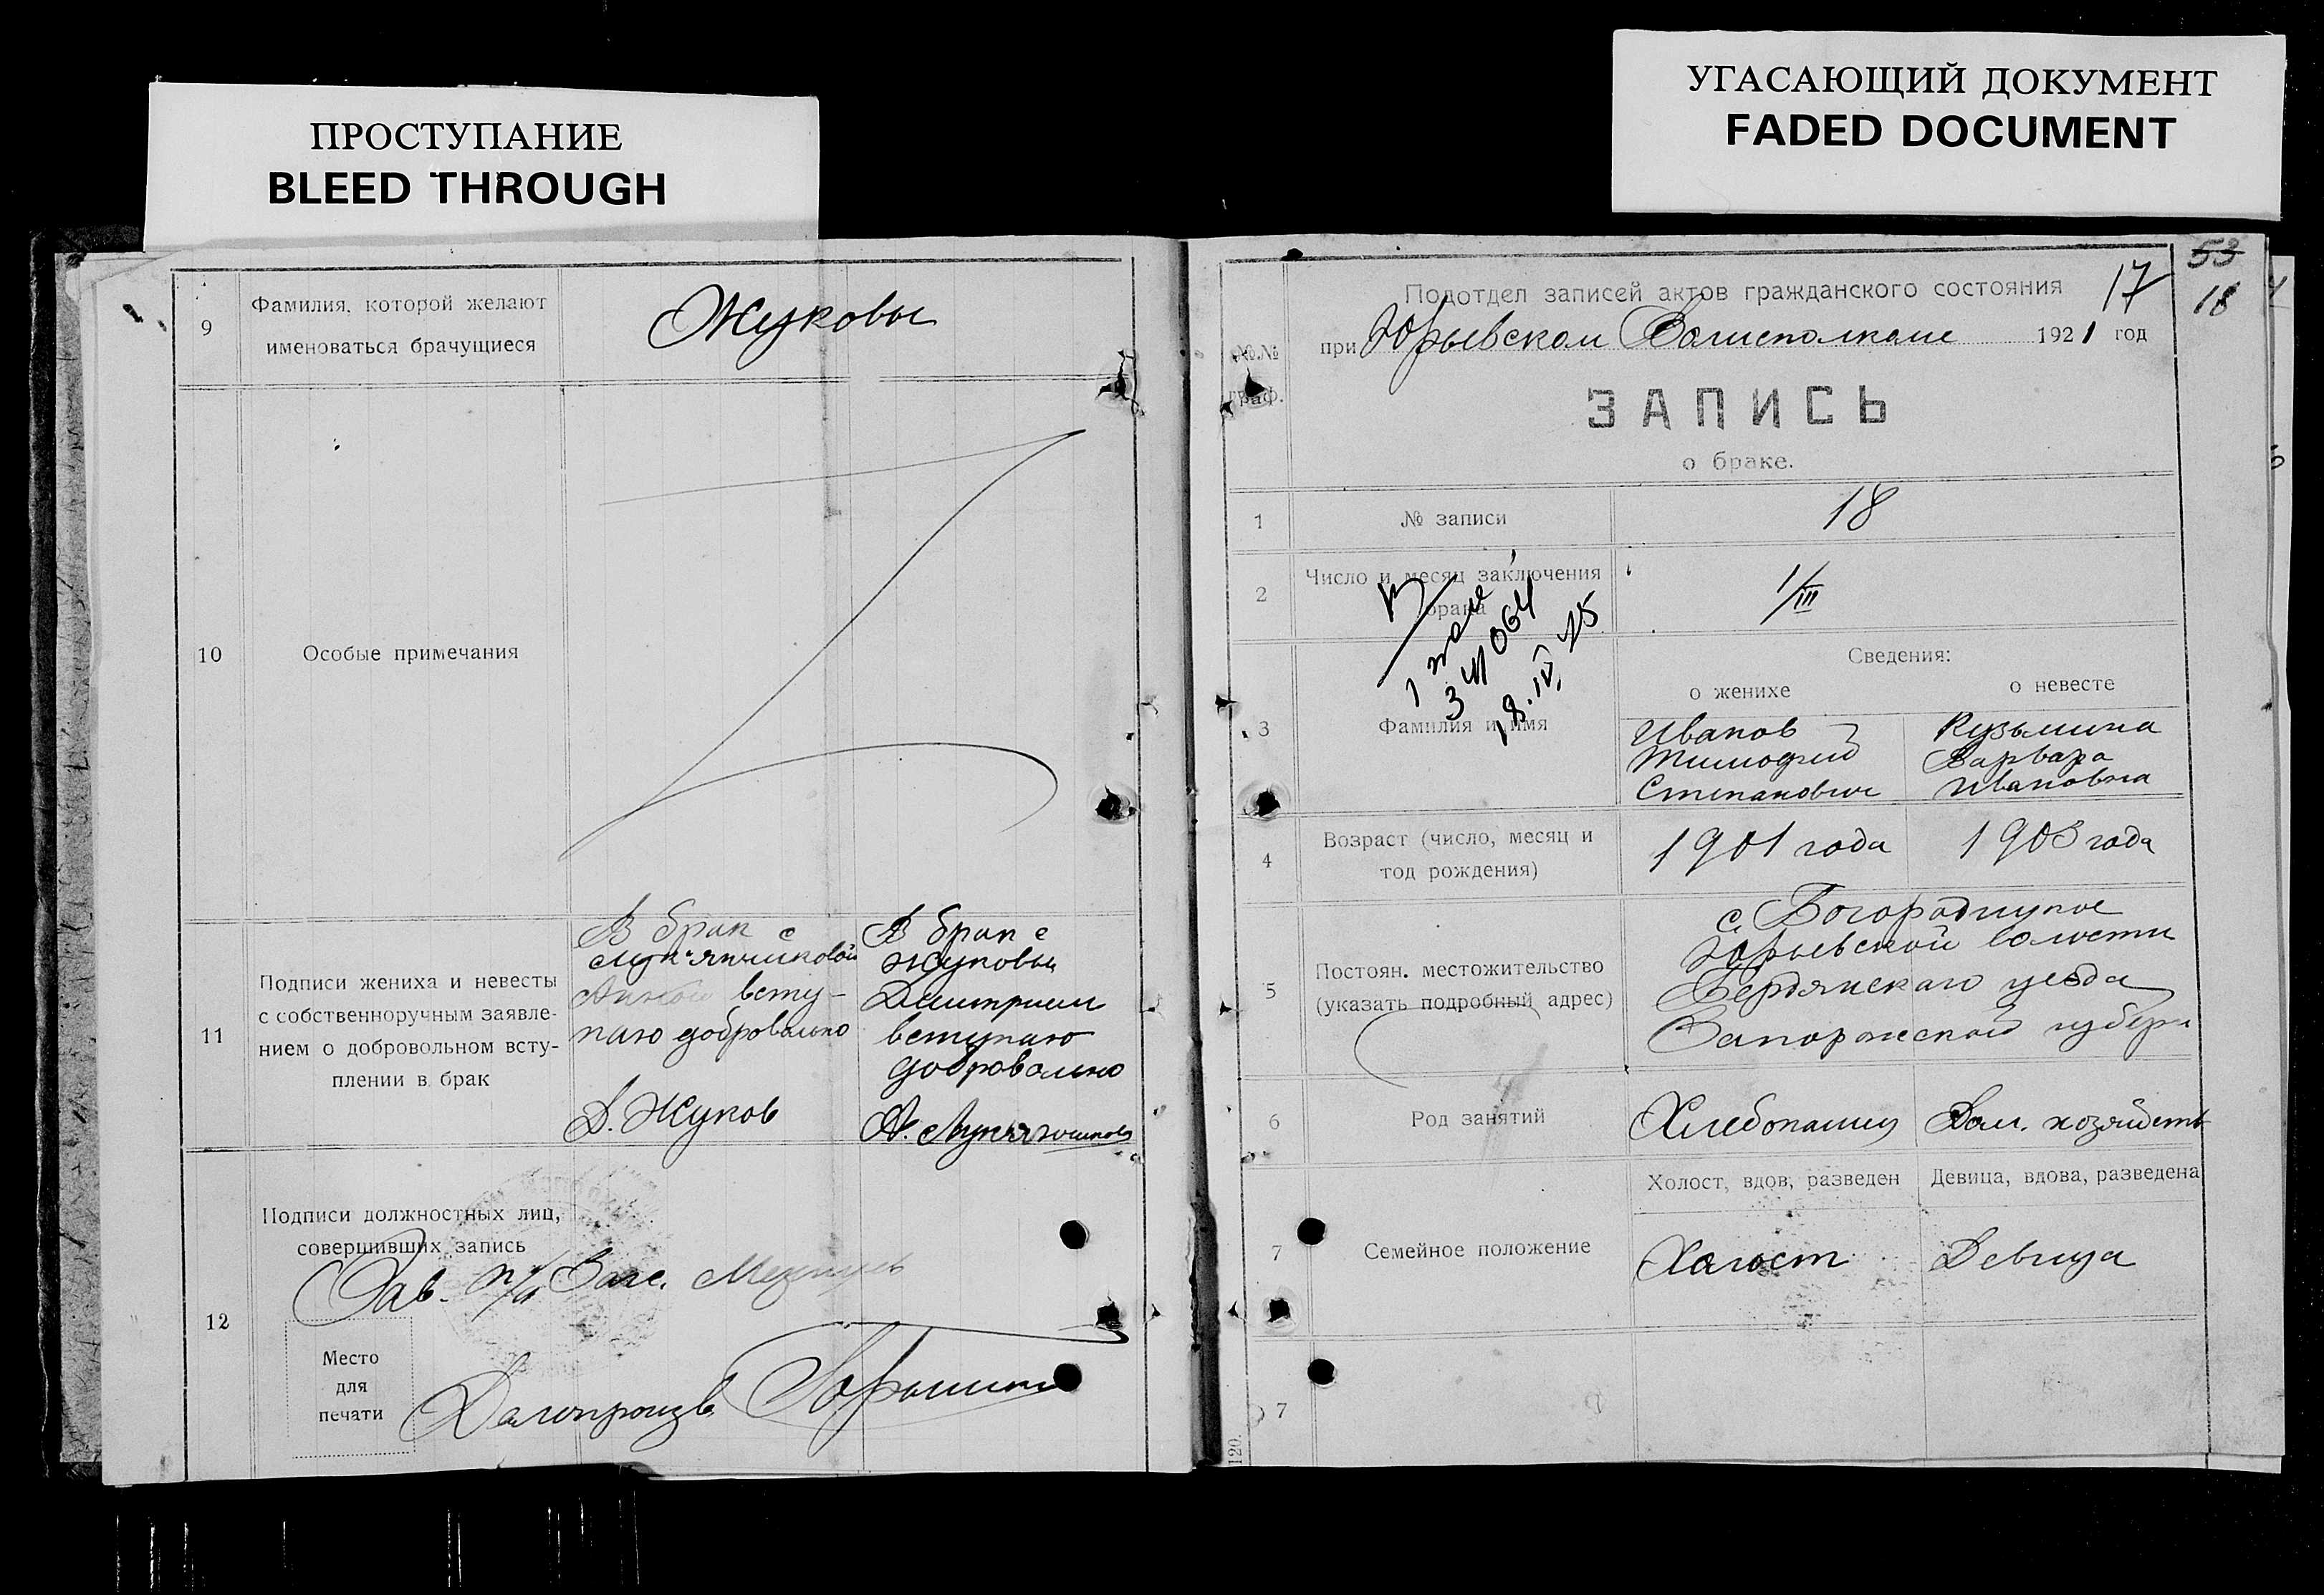 ПРОСТУПАНИЕ
BLEED THROUGH
УГАСАЮЩИЙ ДОКУМЕНТ
FADED DOCUMENT
9
Фамилия, которой желают
именоваться брачущиеся
Жуковы
10
Особые примечания
11
Подписи жениха и невесты
с собственноручным заявле-
нием о добровольном всту-
плении в брак
В брак с
Лук'янчиковой
Анной всту-
паю добровольно
Д. Жуков
В брак с
Жуковым
Дмитрием
вступаю
добровольно
А. Лукянчикова
12
Подписи должностных лиц,
совершивших запись
Зав. п/о Загс.
Место
для
печати
Делопроизв.
53
17
18
Подотдел записей актов гражданского состояния
при Юрьевском Волисполкоме 1921 год
№.№
граф.
ЗАПИСЬ
о браке.
1
№ записи
18
2
Число и месяц заключения
брака
1/III
3
Фамилия и имя
Сведения:
о женихе
о невесте
Иванов
Тимофей
Степанович
Кузьмина
Варвара
Ивановна
4
Возраст (число, месяц и
год рождения)
1901 года
1903 года
5
Постоян. местожительство
(указать подробный адрес)
с. Богородицкое
Юрьевской волости
Бердянскаго уезда
Запорожской губерн
6
Род занятий
Хлебопашец
Дом. хозяйств
7
Семейное положение
Холост, вдов, разведен
Девица, вдова, разведена
Холост
Девица
7
120.